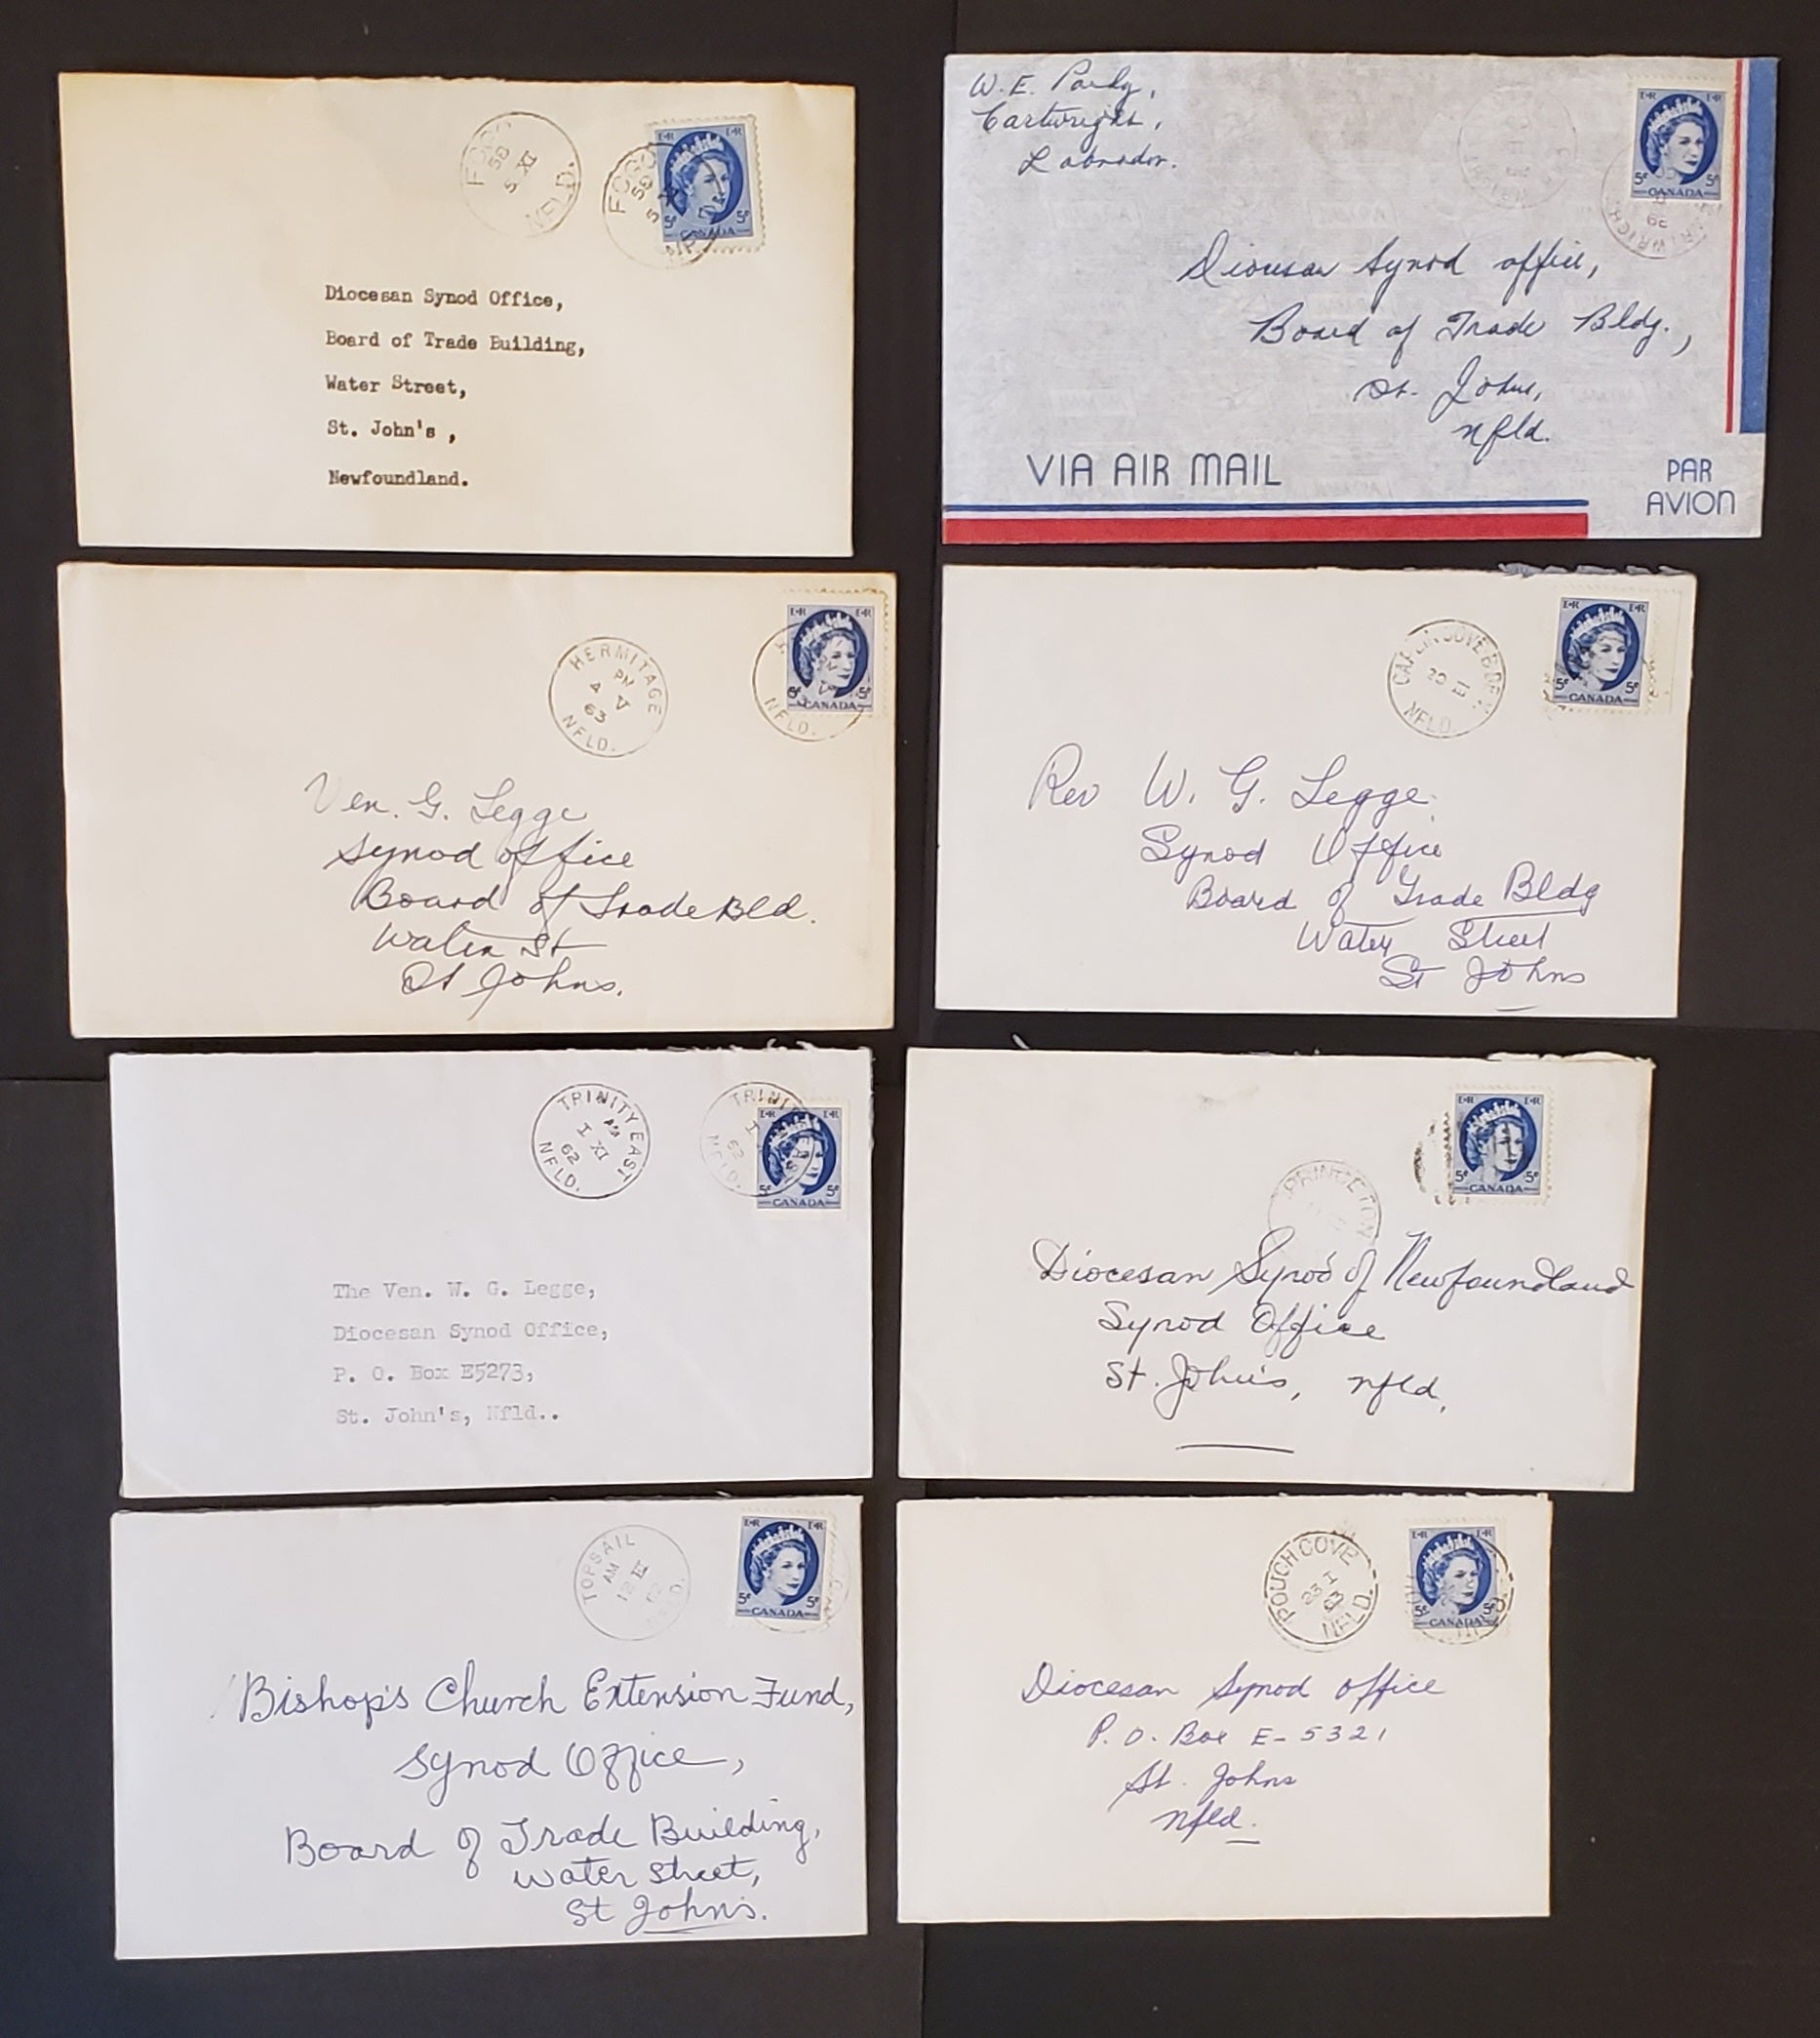 FOGO
58
5 XI
NFLD.
FOGO
58
5 XI
E·R E·R
5¢ 5¢
CANADA
Diocesan Synod Office,
Board of Trade Building,
Water Street,
St. John's ,
Newfoundland.
W. E. Pardy,
Cartwright,
Labrador.
E·R E·R
5¢ 5¢
CANADA
62
Diocesan Synod office,
Board of Trade Bldg.,
St. Johns,
nfld.
VIA AIR MAIL
PAR
AVION
HERMITAGE
PM
4 V
63
NFLD.
E·R E·R
5¢ 5¢
CANADA
NFLD.
Ven. G. Legge
Synod office
Board of Trade Bld.
Water St
St Johns.
CAPLIN COVE B DE V
20 III
NFLD.
E·R E·R
5¢ 5¢
CANADA
Rev W. G. Legge
Synod Office
Board of Trade Bldg
Water Street
St Johns
TRINITY EAST
AM
I XI
62
NFLD.
TRINITY EAST
I
62
NFLD.
E·R E·R
5¢ 5¢
CANADA
The Ven. W. G. Legge,
Diocesan Synod Office,
P. O. Box E5273,
St. John's, Nfld..
PRINCETON
E·R E·R
5¢ 5¢
CANADA
Diocesan Synod of Newfoundland
Synod Office
St. John's, nfld,
TOPSAIL
AM
12 III
62
NFLD.
E·R E·R
5¢ 5¢
CANADA
Bishop's Church Extension Fund,
Synod Office,
Board of Trade Building,
Water Street,
St John's.
POUCH COVE
23 I
63
NFLD.
E·R E·R
5¢ 5¢
CANADA
Diocesan Synod office
P. O. Box E-5321
St. Johns
nfld.